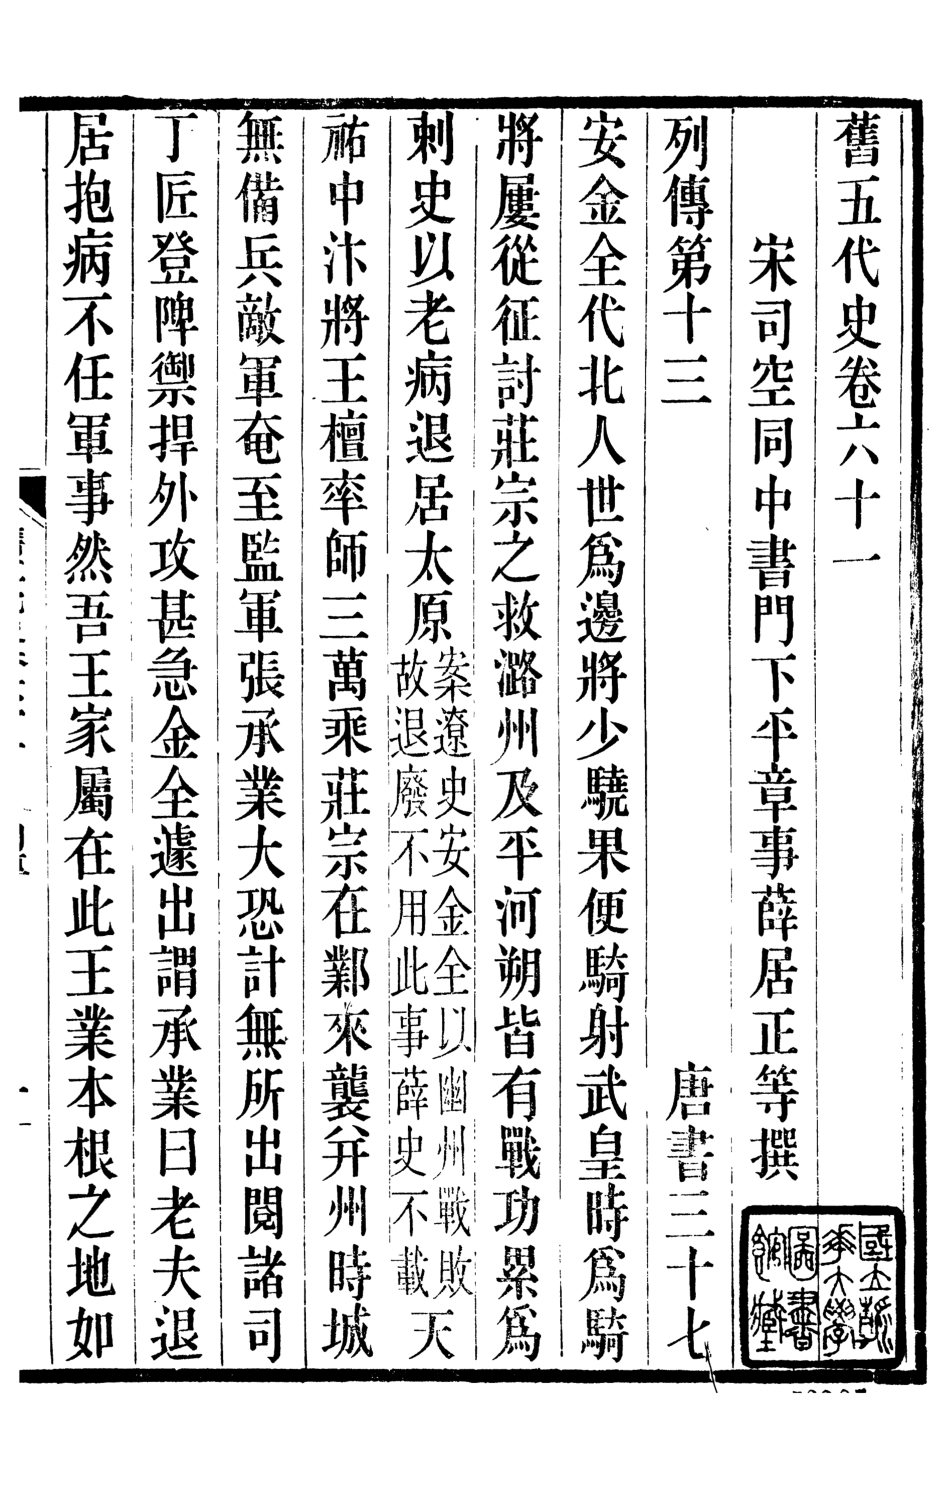 舊五代史卷六十一
宋司空同中書門下平章事薛居正等撰
列傳第十三 唐書三十七
安金全代北人世爲邊將少驍果便騎射武皇時爲騎
將屢從征討莊宗之救潞州及平河朔皆有戰功累爲
刺史以老病退居太原案遼史安金全以幽州戰敗故退廢不用此事薛史不載天
祐中汴將王檀率師三萬乘莊宗在鄴來襲并州時城
無備兵敵軍奄至監軍張承業大恐計無所出閱諸司
丁匠登陴禦捍外攻甚急金全遽出謂承業曰老夫退
居抱病不任軍事然吾王家屬在此王業本根之地如